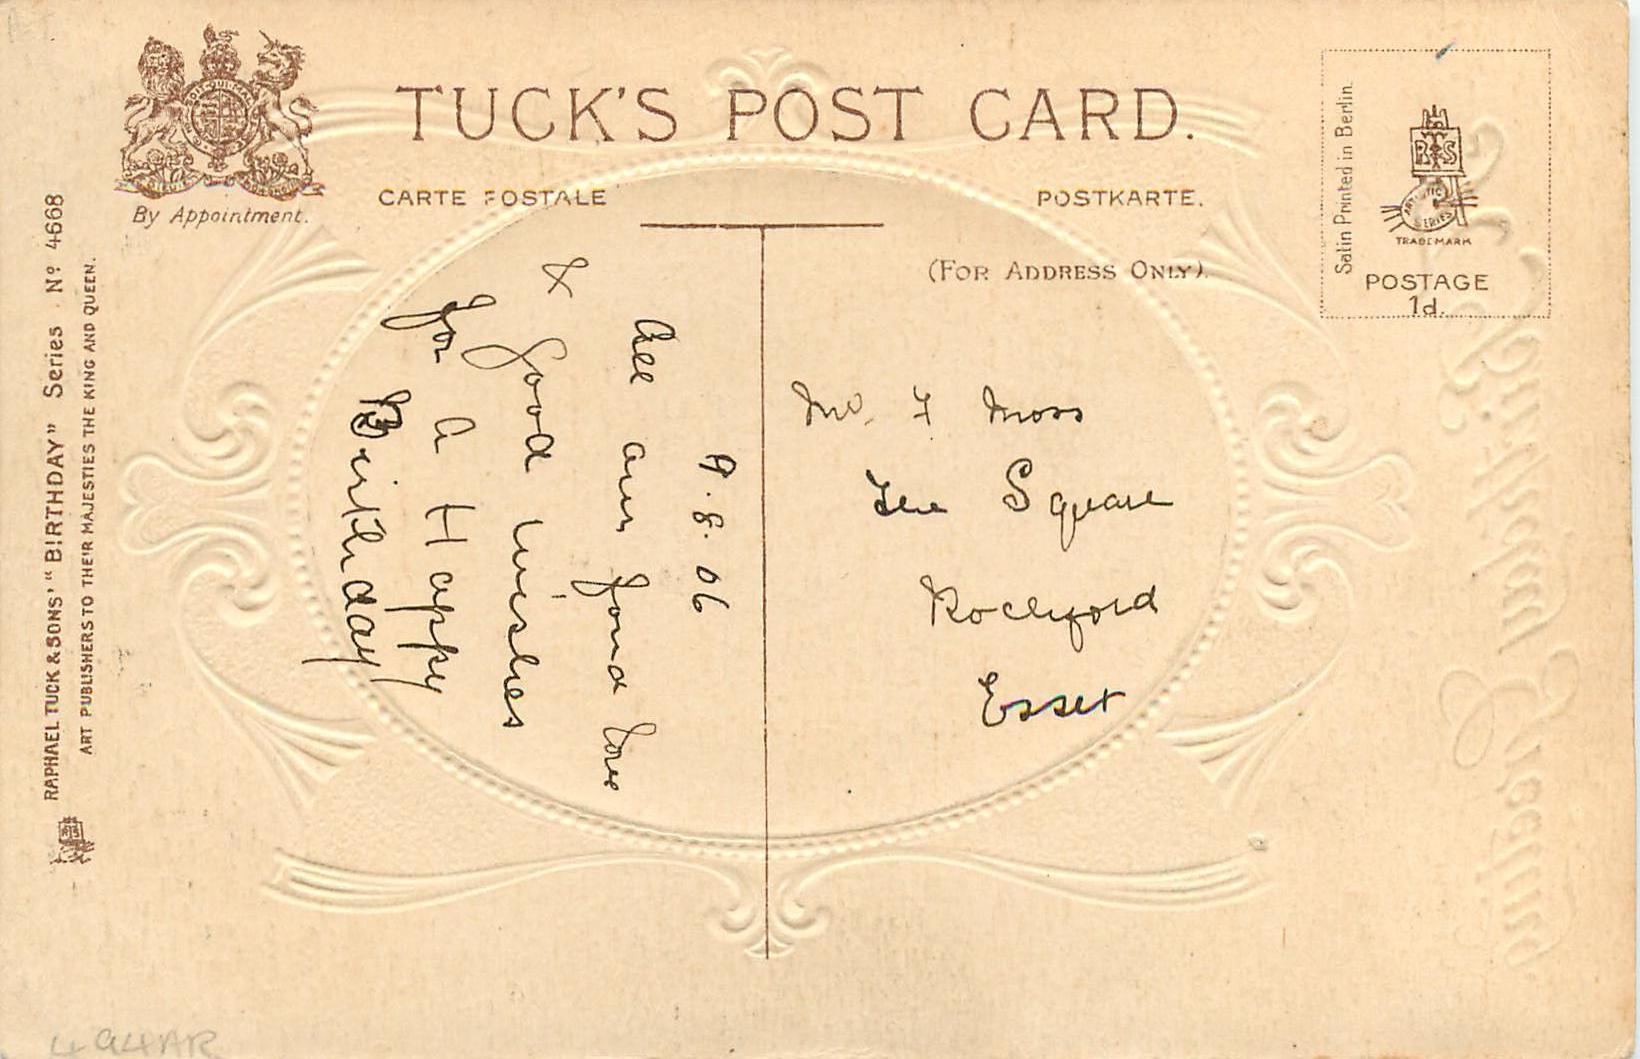 TUCK'S POST CARD.
CARTE POSTALE
POSTKARTE.
By Appointment.
(FOR ADDRESS ONLY).
Satin Printed in Berlin.
R T S
ARTISTIC
SERIES
TRADE MARK
POSTAGE
1d.
RAPHAEL TUCK & SONS' "BIRTHDAY" Series Nº 4668
ART PUBLISHERS TO THEIR MAJESTIES THE KING AND QUEEN.
9.8.06
All our fond love
& Good wishes
for a Happy
Birthday
F Moss
The Square
Rochford
Essex